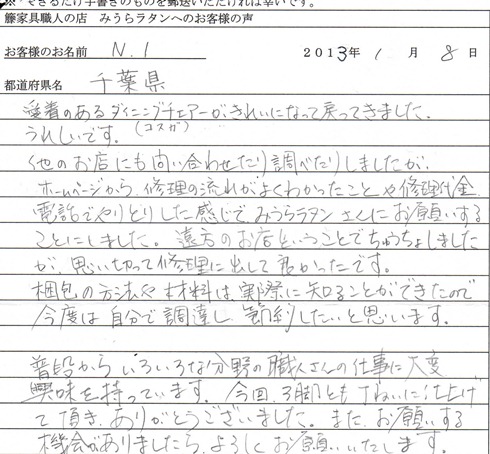 ※ できるだけ手書きのものを郵送いただければ幸いです。
籐家具職人の店 みうらラタンへのお客様の声
お客様のお名前 N.I 2013年 1 月 8 日
都道府県名 千葉県
愛着のあるダイニングチェアーがきれいになって戻ってきました。
(コスガ)
うれしいです。
他のお店にも問い合わせたり調べたりしましたが、
ホームページから、修理の流れがよくわかったことや修理代金
電話でやりとりした感じで、みうらラタンさんにお願いする
ことにしました。遠方のお店ということでちゅうちょしました
が、思い切って修理に出して良かったです。
梱包の方法や材料は、実際に知ることができたので
今度は自分で調達し、節約したいと思います。
普段からいろいろな分野の職人さんの仕事に大変
興味を持っています。今回、3脚ともていねいに仕上げ
て頂き、ありがとうございました。また、お願いする
機会がありましたら、よろしくお願いいたします。